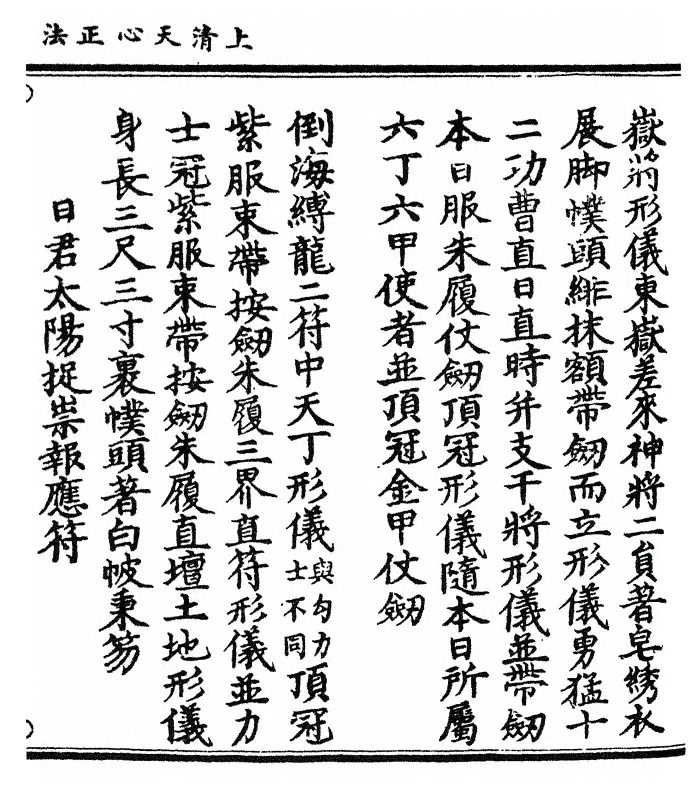 上清天心正法
嶽將形儀東嶽差來神將二員著皂綉衣
展脚幞頭緋抹額帶劒而立形儀勇猛十
二功曹直日直時并支干將形儀並帶劒
本日服朱履仗劒頂冠形儀隨本日所屬
六丁六甲使者並頂冠金甲仗劒
倒海縛龍二符中天丁形儀與勾力士不同頂冠
紫服束帶按劒朱履三界直符形儀並力
士冠紫服束帶按劒朱履直壇土地形儀
身長三尺三寸裹幞頭著白帔秉笏
日君太陽捉祟報應符